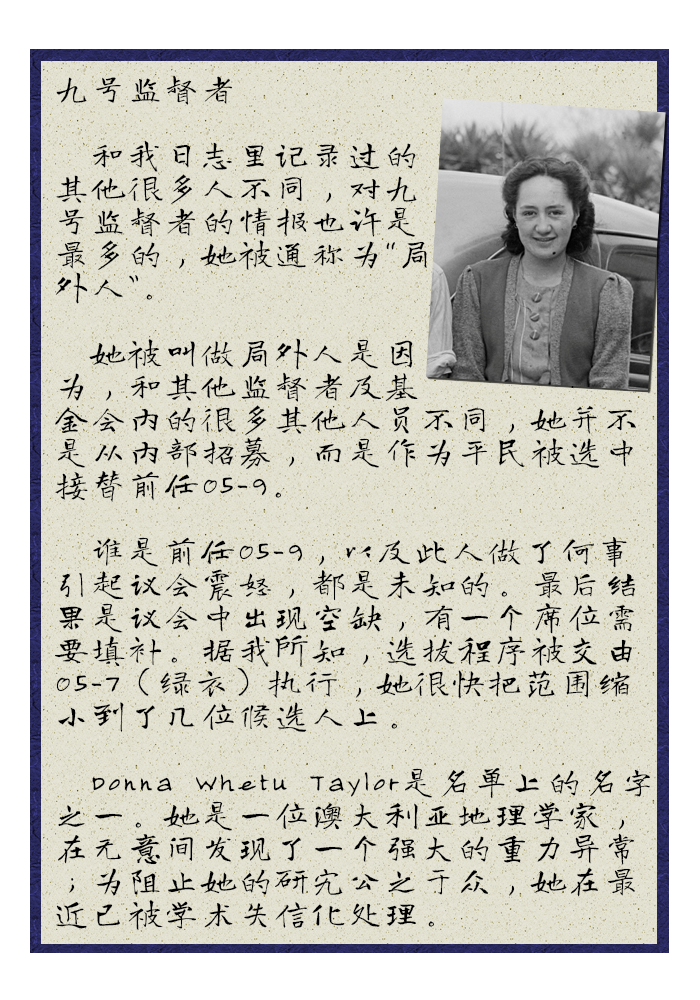 九号监督者
和我日志里记录过的
其他很多人不同，对九
号监督者的情报也许是
最多的，她被通称为“局
外人”。
她被叫做局外人是因
为，和其他监督者及基
金会内的很多其他人员不同，她并不
是从内部招募，而是作为平民被选中
接替前任05-9。
谁是前任05-9，以及此人做了何事
引起议会震怒，都是未知的。最后结
果是议会中出现空缺，有一个席位需
要填补。据我所知，选拔程序被交由
05-7（绿衣）执行，她很快把范围缩
小到了几位候选人上。
Donna Whetu Taylor是名单上的名字
之一。她是一位澳大利亚地理学家，
在无意间发现了一个强大的重力异常
；为阻止她的研究公之于众，她在最
近已被学术失信化处理。